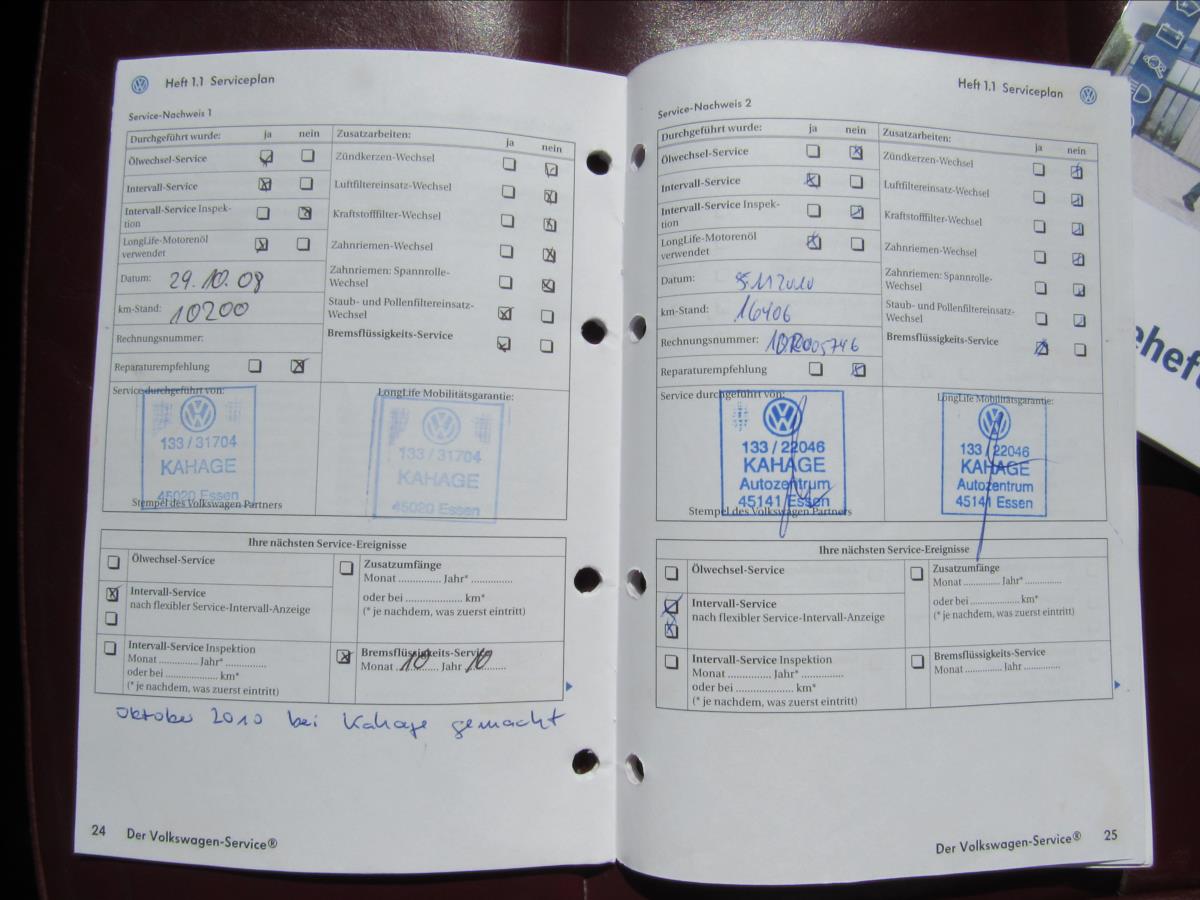 Heft 1.1 Serviceplan
Service-Nachweis 1
Durchgeführt wurde: ja nein
Ölwechsel-Service
Intervall-Service
Intervall-Service Inspek-
tion
LongLife-Motorenöl
verwendet
Datum: 29.10.08
km-Stand: 10200
Rechnungsnummer:
Reparaturempfehlung
Zusatzarbeiten: ja nein
Zündkerzen-Wechsel
Luftfiltereinsatz-Wechsel
Kraftstofffilter-Wechsel
Zahnriemen-Wechsel
Zahnriemen: Spannrolle-
Wechsel
Staub- und Pollenfiltereinsatz-
Wechsel
Bremsflüssigkeits-Service
Service durchgeführt von:
133 / 31704
KAHAGE
45020 Essen
Stempel des Volkswagen Partners
LongLife Mobilitätsgarantie:
133 / 31704
KAHAGE
45020 Essen
Ihre nächsten Service-Ereignisse
Ölwechsel-Service
Intervall-Service
nach flexibler Service-Intervall-Anzeige
Intervall-Service Inspektion
Monat ............. Jahr* .............
oder bei .................... km*
(* je nachdem, was zuerst eintritt)
Zusatzumfänge
Monat ............. Jahr* .............
oder bei .................... km*
(* je nachdem, was zuerst eintritt)
Bremsflüssigkeits-Service
Monat 10 Jahr 10
Oktober 2010 bei Kahage gemacht
24 Der Volkswagen-Service®
Heft 1.1 Serviceplan
Service-Nachweis 2
Durchgeführt wurde: ja nein
Ölwechsel-Service
Intervall-Service
Intervall-Service Inspek-
tion
LongLife-Motorenöl
verwendet
Datum: 2010
km-Stand: 16406
Rechnungsnummer:
Reparaturempfehlung
Zusatzarbeiten: ja nein
Zündkerzen-Wechsel
Luftfiltereinsatz-Wechsel
Kraftstofffilter-Wechsel
Zahnriemen-Wechsel
Zahnriemen: Spannrolle-
Wechsel
Staub- und Pollenfiltereinsatz-
Wechsel
Bremsflüssigkeits-Service
Service durchgeführt von:
133 / 22046
KAHAGE
Autozentrum
45141 Essen
Stempel des Volkswagen Partners
LongLife Mobilitätsgarantie:
133 / 22046
KAHAGE
Autozentrum
45141 Essen
Ihre nächsten Service-Ereignisse
Ölwechsel-Service
Intervall-Service
nach flexibler Service-Intervall-Anzeige
Intervall-Service Inspektion
Monat ............. Jahr* .............
oder bei .................... km*
(* je nachdem, was zuerst eintritt)
Zusatzumfänge
Monat ............. Jahr* .............
oder bei .................... km*
(* je nachdem, was zuerst eintritt)
Bremsflüssigkeits-Service
Monat ............. Jahr .............
Der Volkswagen-Service® 25